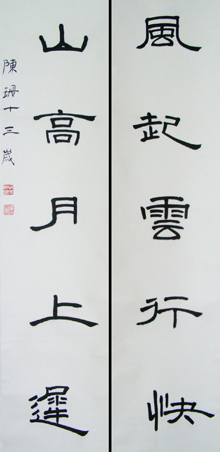 風起雲行快
山高月上遲
陳珊十三歲